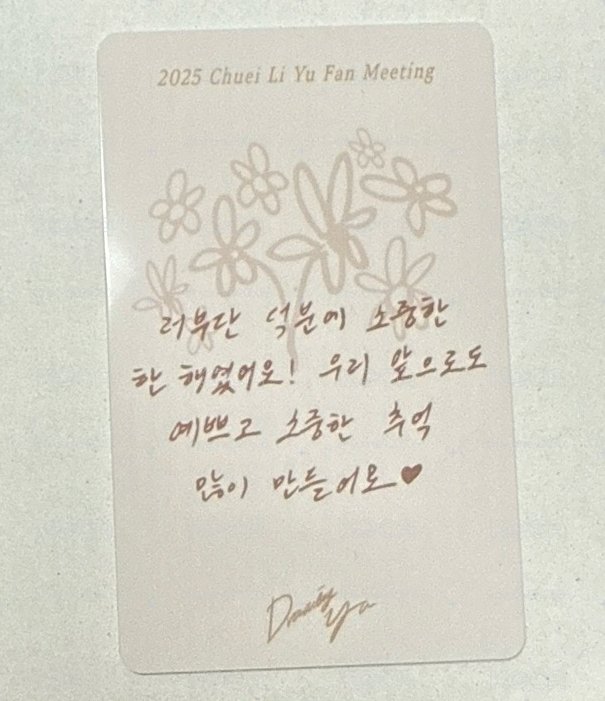 2025 Chuei Li Yu Fan Meeting
러부단 덕분에 소중한
한 해였어요! 우리 앞으로도
예쁘고 소중한 추억
많이 만들어요♥